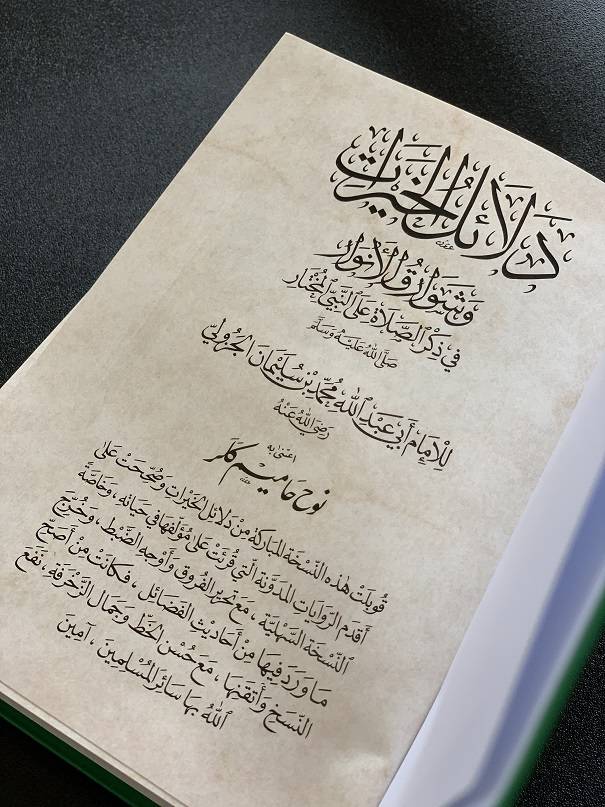 دَلَائِلُ الخَيْرَاتِ
وَشَوَارِقُ الأَنْوَارِ
فِي ذِكْرِ الصَّلَاةِ عَلَى النَّبِيِّ المُخْتَارِ
صَلَّى اللهُ عَلَيْهِ وَسَلَّمَ
لِلإِمَامِ أَبِي عَبْدِ اللهِ مُحَمَّدِ بْنِ سُلَيْمَانَ الجُزُولِيِّ
رَضِيَ اللهُ عَنْهُ
اعتنى به
نوح حاميم كلر
قُوبِلَتْ هٰذِهِ النُّسْخَةُ المُبَارَكَةُ مِنْ دَلَائِلِ الخَيْرَاتِ وَصُحِّحَتْ عَلَى
أَقْدَمِ الرِّوَايَاتِ المُدَوَّنَةِ الَّتِي قُرِئَتْ عَلَى مُؤَلِّفِهَا فِي حَيَاتِهِ، وَخَاصَّةً
النُّسْخَةِ السَّهْلِيَّةِ، مَعَ تَحْرِيرِ الفُرُوقِ وَأَوْجُهِ الضَّبْطِ، وَخُرِّجَ
مَا وَرَدَ فِيهَا مِنْ أَحَادِيثِ الفَضَائِلِ، فَكَانَتْ مِنْ أَصَحِّ
النُّسَخِ وَأَتْقَنِهَا، مَعَ حُسْنِ الخَطِّ وَجَمَالِ الزَّخْرَفَةِ، نَفَعَ
اللهُ بِهَا سَائِرَ المُسْلِمِينَ، آمِينَ